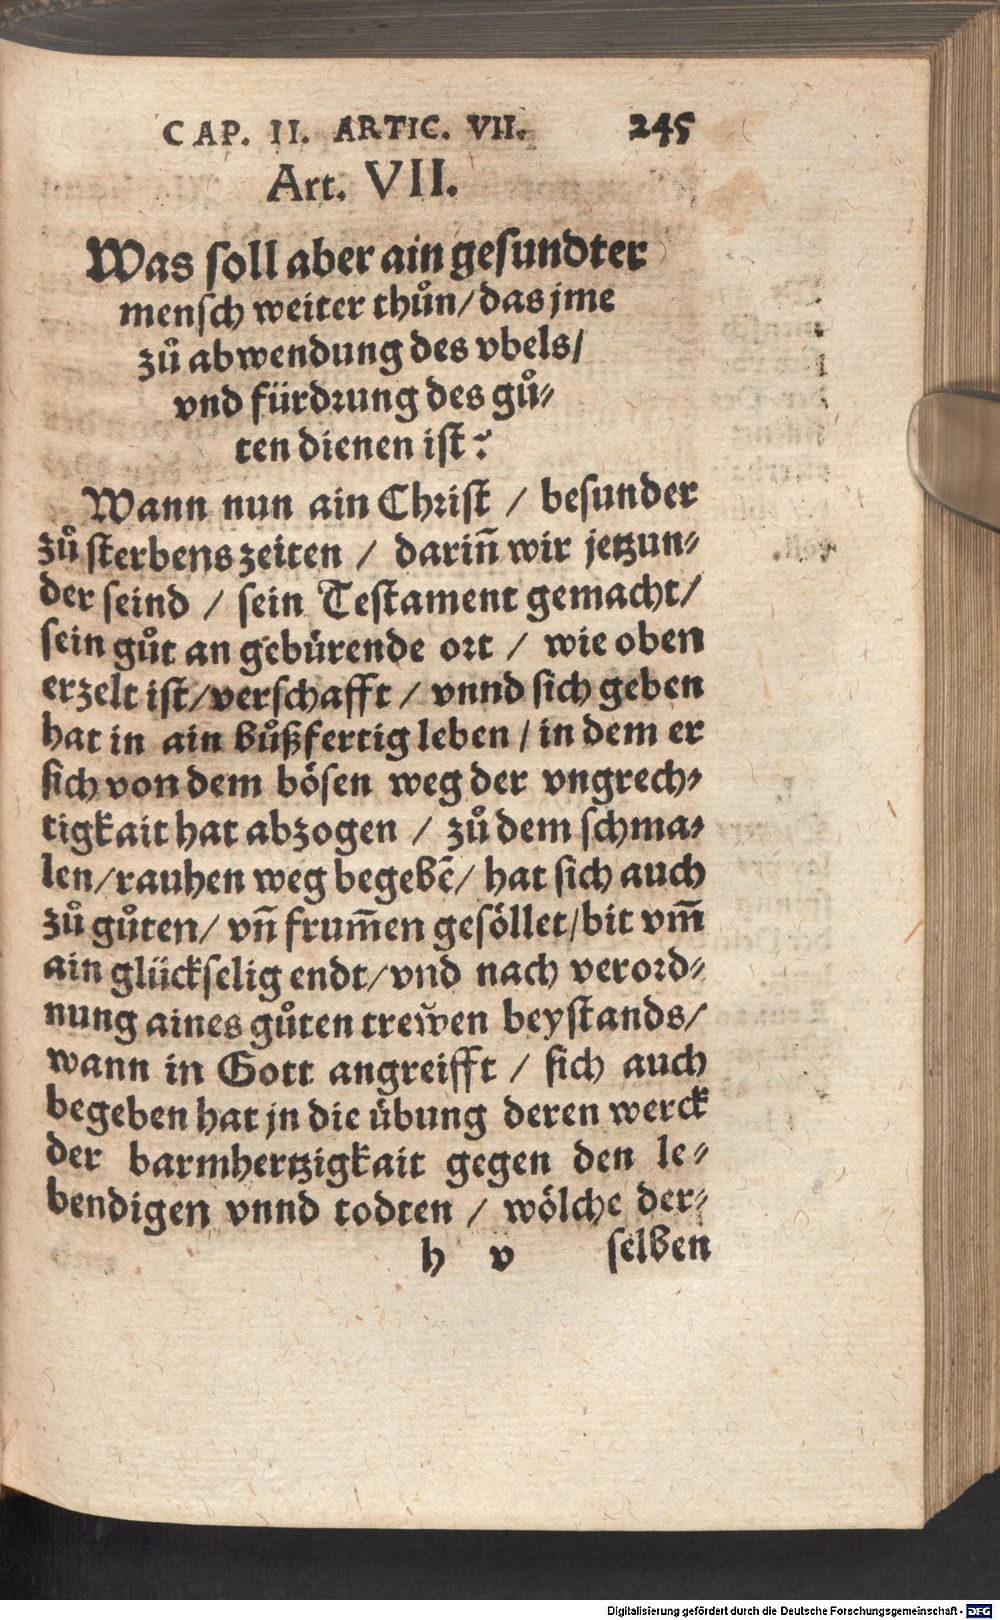 CAP. II. ARTIC. VII. 245
Art. VII.
Was soll aber ain gesundter
mensch weiter thuͦn/ das jme
zuͦ abwendung des vbels/
vnd fürdrung des guͦ⸗
ten dienen ist?
Wann nun ain Christ / besunder
zuͦ sterbens zeiten / dariñ wir jetzun⸗
der seind / sein Testament gemacht/
sein guͦt an gebürende ort / wie oben
erzelt ist/ verschafft / vnnd sich geben
hat in ain buͦßfertig leben / in dem er
sich von dem bösen weg der vngrech⸗
tigkait hat abzogen / zuͦ dem schma⸗
len/ rauhen weg begebē/ hat sich auch
zuͦ guͦten/ vñ frum̃en gesöllet/ bit vm̃
ain glückselig endt/ vnd nach verord⸗
nung aines guͦten trew̆en beystands/
wann in Gott angreifft / sich auch
begeben hat jn die übung deren werck
der barmhertzigkait gegen den le⸗
bendigen vnnd todten / wölche der⸗
h v selben
Digitalisierung gefördert durch die Deutsche Forschungsgemeinschaft - DFG